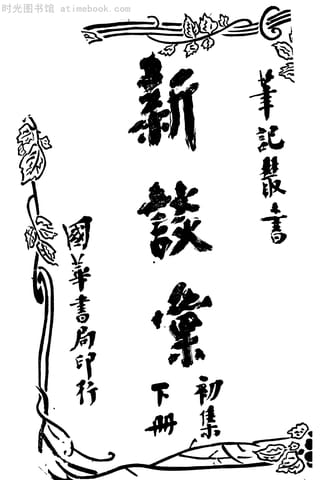 时光图书馆 atimebook.com
筆記叢書
新談彙
初集
下冊
國華書局印行